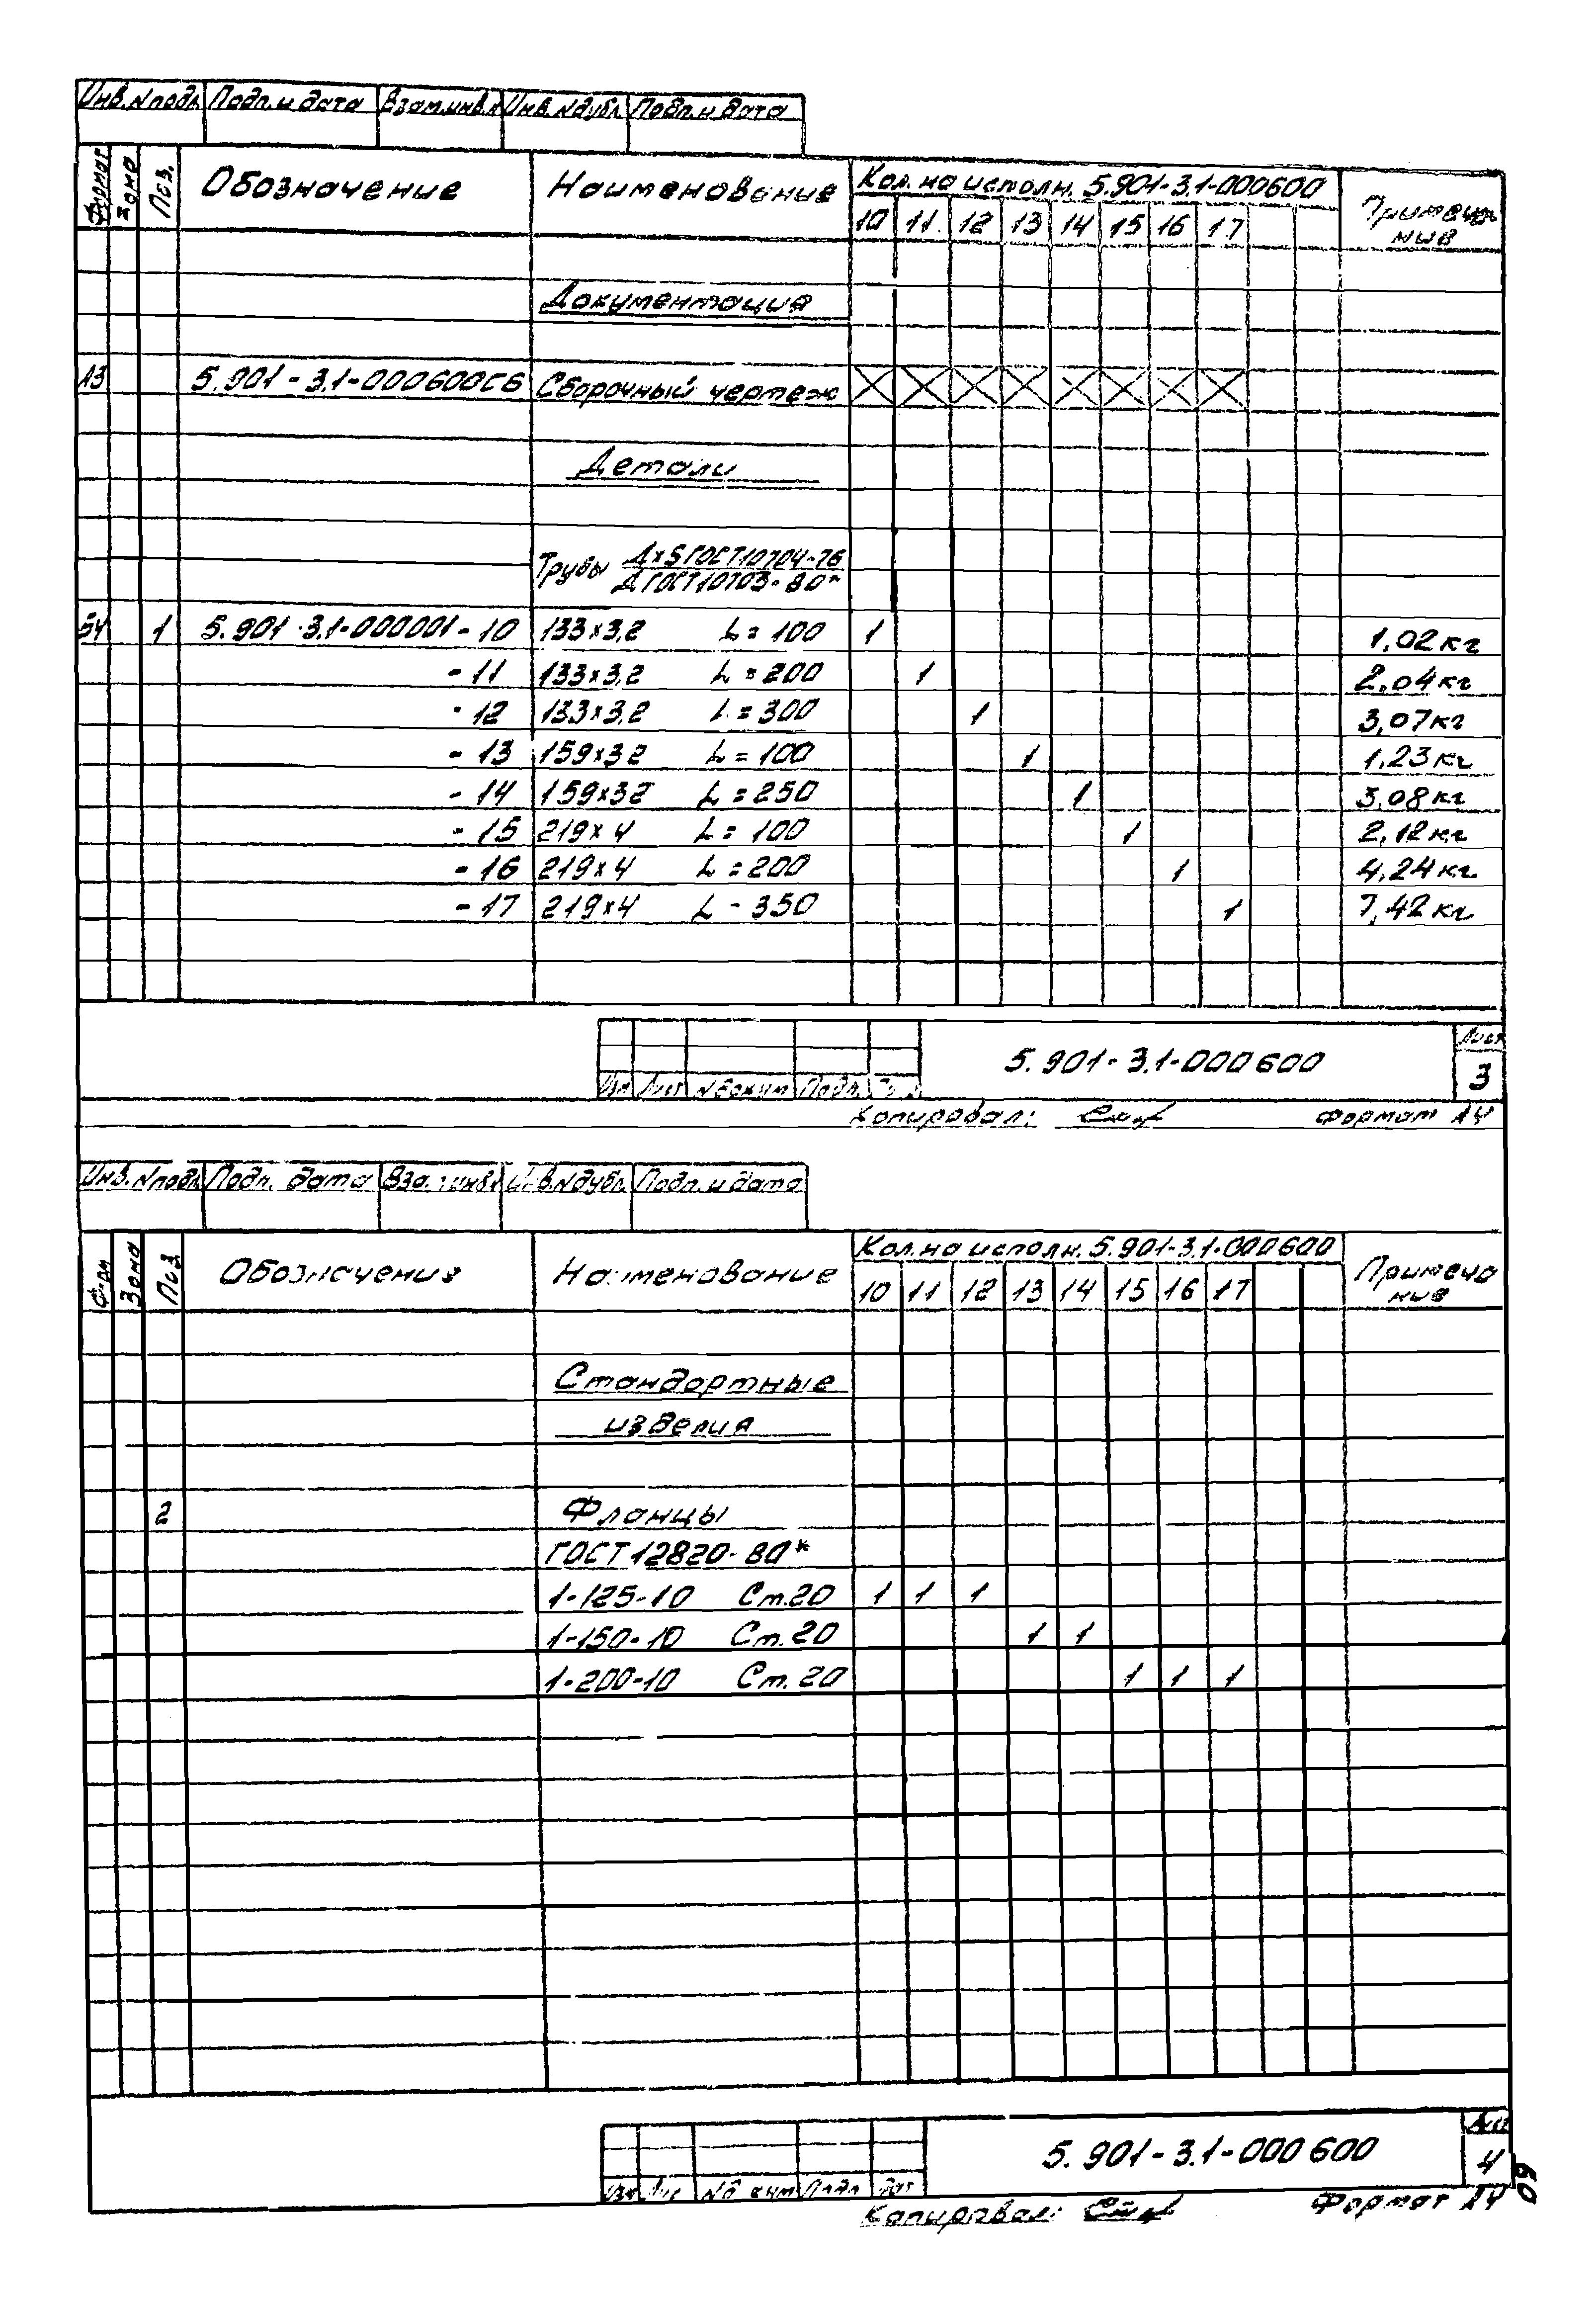 Инв.N подл. Подп. и дата Взам.инв.N Инв.N дубл. Подп. и дата
Формат Зона Поз. Обозначение Наименование Кол. на исполн. 5.901-3.1-000600 Примеча-
10 11 12 13 14 15 16 17 ние
Документация
А3 5.901-3.1-000600СБ Сборочный чертеж
Детали
Трубы Д×5 ГОСТ 10704-76
Д ГОСТ 10703-80*
БЧ 1 5.901-3.1-000001-10 133×3,2 L=100 1 1,02кг
-11 133×3,2 L=200 1 2,04кг
-12 133×3,2 L=300 1 3,07кг
-13 159×32 L=100 1 1,23кг
-14 159×32 L=250 1 3,08кг
-15 219×4 L=100 1 2,12кг
-16 219×4 L=200 1 4,24кг
-17 219×4 L-350 1 7,42кг
5.901-3.1-000600 Лист
3
Изм Лист N докум Подп.
Копировал: Формат А4
Инв.N подл. Подп. дата Вза. инв. Инв.N дубл. Подп. и дата
Зона Поз Обозначение Наименование Кол. на исполн. 5.901-3.1-000600 Примеча
10 11 12 13 14 15 16 17 ние
Стандартные
изделия
2 Фланцы
ГОСТ 12820-80*
1-125-10 Ст.20 1 1 1
1-150-10 Ст.20 1 1
1-200-10 Ст.20 1 1 1
5.901-3.1-000600 Лист
4
Изм Лис Подп Дат
60
Копировал: Формат А4